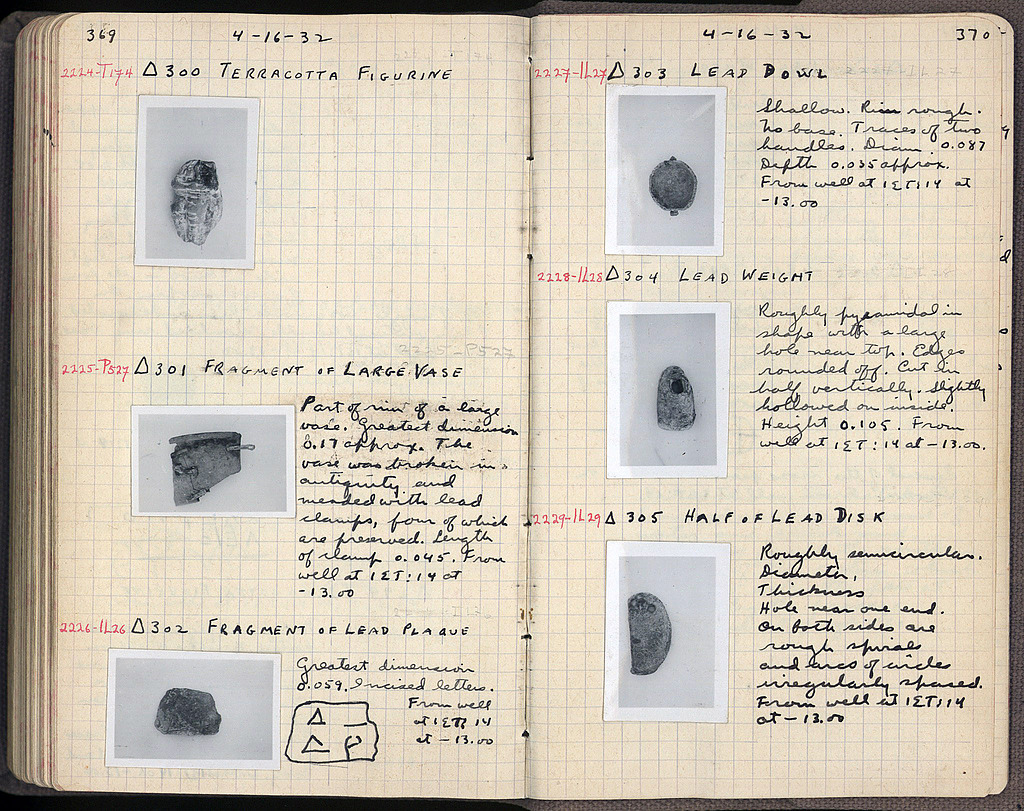 369
4-16-32
2224-T174 Δ 300 TERRACOTTA FIGURINE
2225-P527 Δ 301 FRAGMENT OF LARGE VASE
Part of rim of a large
vase. Greatest dimension
0.17 approx. The
vase was broken in
antiquity and
mended with lead
clamps, four of which
are preserved. Length
of clamp 0.045. From
well at 1ΣT:14 at
-13.00
2226-IL26 Δ 302 FRAGMENT OF LEAD PLAQUE
Greatest dimension
0.059. Incised letters.
From well
at 1ΣT: 14
at -13.00
4-16-32
370
2227-IL27 Δ 303 LEAD BOWL
Shallow. Rim rough.
No base. Traces of two
handles. Diam. 0.087
Depth 0.035 approx.
From well at 1ΣT:14 at
-13.00
2228-IL28 Δ 304 LEAD WEIGHT
Roughly pyramidal in
shape with a large
hole near top. Edges
rounded off. Cut in
half vertically. Slightly
hollowed on inside.
Height 0.105. From
well at 1ΣT:14 at -13.00.
2229-IL29 Δ 305 HALF OF LEAD DISK
Roughly semicircular.
Diameter,
Thickness
Hole near one end.
On both sides are
rough spirals
and arcs of circles
irregularly spaced.
From well at 1ΣT:14
at -13.00